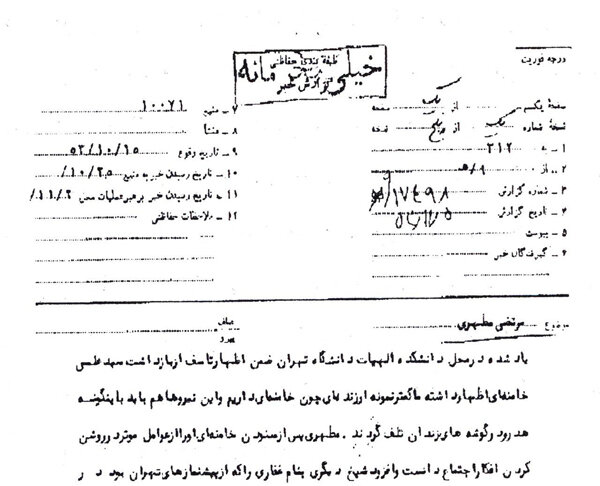 درجه فوریت
طبقه بندی حفاظتی
خیلی محرمانه
گزارش خبر
صفحه یکم از یک صفحه
نسخه شماره یک از پنج نسخه
۱ - به ۳۱۲
۲ - از ۹/ه
۳ - شماره گزارش
۴ - تاریخ گزارش
۵ - پیوست
۶ - گیرندگان خبر
۷ - منبع ۱۰۰۷۱
۸ - منشأ
۹ - تاریخ وقوع ۵۳/۱۰/۱۵
۱۰ - تاریخ رسیدن خبر به منبع ۱۰/۲۵/
۱۱ - تاریخ رسیدن خبر به رهبر عملیات ۱۱/۲/
۱۲ - ملاحظات حفاظتی
موضوع مرتضی مطهری
عطف
پیرو
یاد شده در محل دانشکده الهیات دانشگاه تهران ضمن اظهار تاسف از بازداشت سید علی
خامنه‌ای اظهار داشته ما کمتر نمونه ارزنده‌ای چون خامنه‌ای داریم و این نیروها هم باید باینگونه
هدر رود و گوشه های زندان تلف گردند . مطهری پس از ستودن خامنه‌ای او را از عوامل موثر در روشن
کردن افکار اجتماع دانست و افزود شیخ دیگری بنام غفاری را که از پیشنمازهای تهران بود در